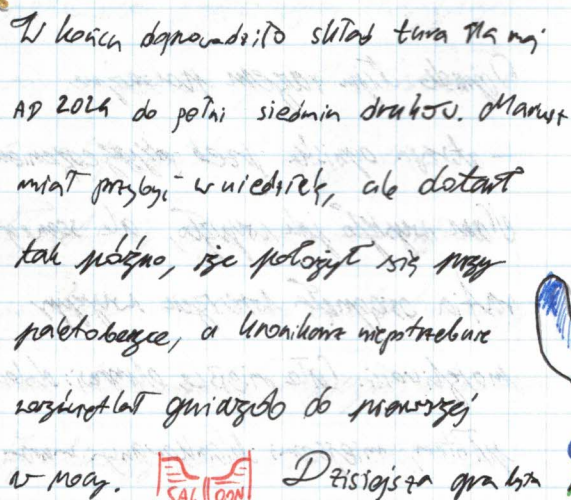 W końcu doprowadziło skład tura na maj
AD 2024 do pełni siedmiu druhów. Mariusz
miał przybyć w niedzielę, ale dotarł
tak późno, iże położył się przy
paletobergce, a kronikarz niepotrzebnie
rozświetlał gniazdo do pierwszej
w nocy. SAL OON Dzisiejsza gra była